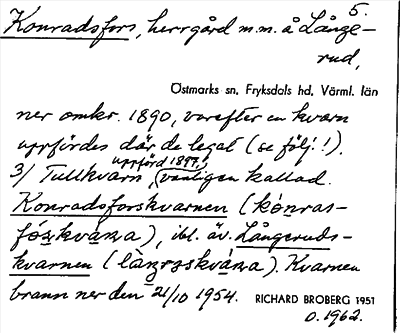 5.
Konradsfors, herrgård m.m. å Långe-
rud,
Östmarks sn, Fryksdals hd, Värml. län
ner omkr. 1890, varefter en kvarn
uppfördes där de legat (se följ.!).
uppförd 1897,
3/ Tullkvarn, (vanligen kallad
Konradsforskvarnen (kònras-
kvàɳa), ibl. äv. Långeruds-
kvarnen (                    ). Kvarnen
brann ner den 21/10 1954. RICHARD BROBERG 1951
o. 1962.